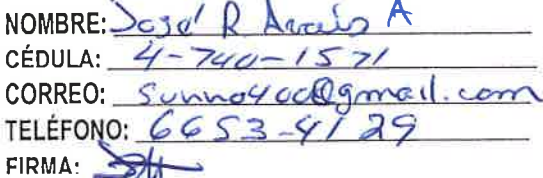 NOMBRE: José R Arauz A
CÉDULA: 4-740-1571
CORREO: Sunno400@gmail.com
TELÉFONO: 6653-4129
FIRMA: